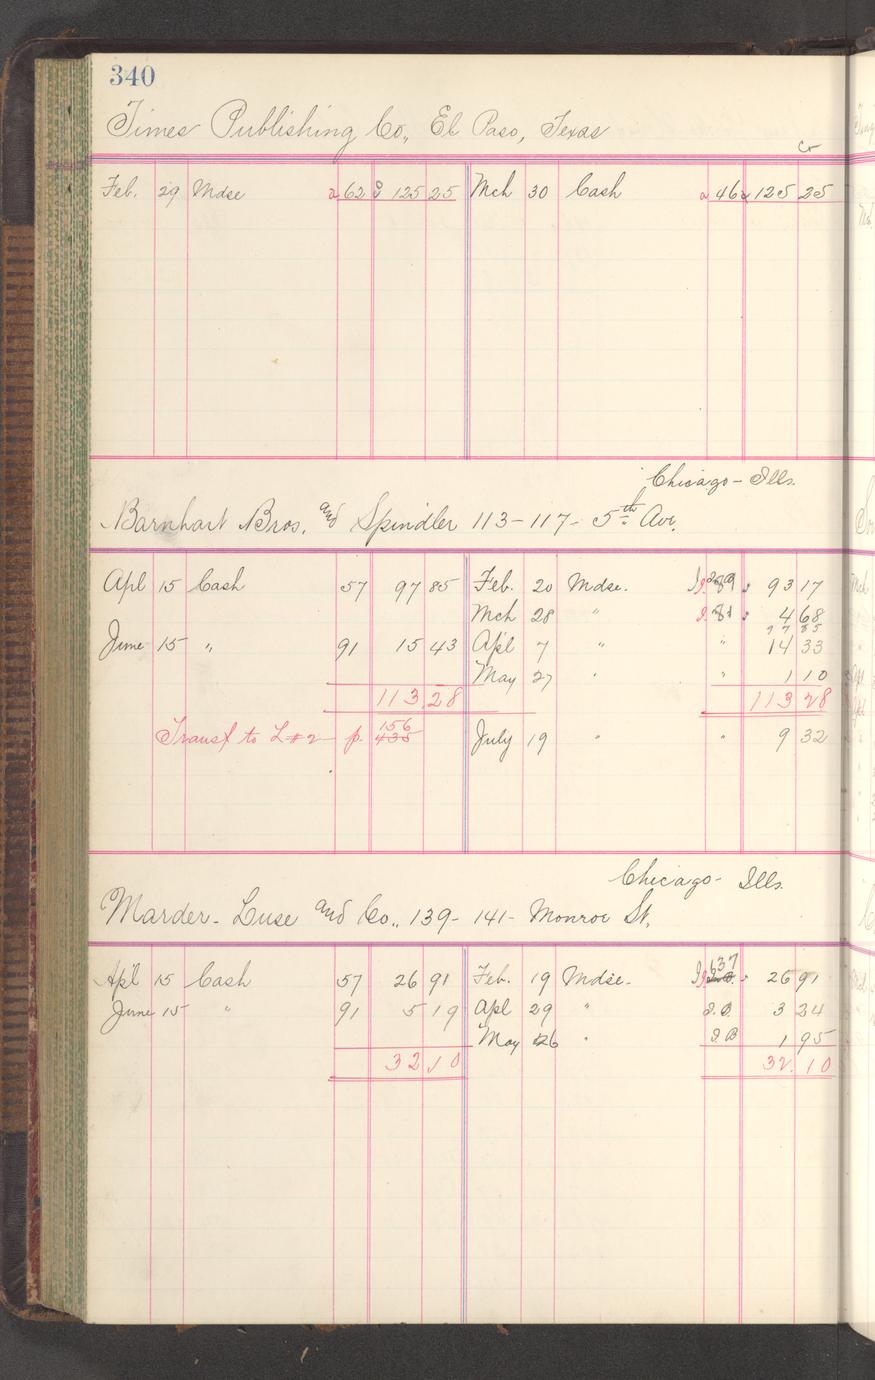 340
Times Publishing Co., El Paso, Texas
Cr
Feb. 29 Mdse a 62 125 25 Mch 30 Cash a 46 125 25
Chicago - Ills.
Barnhart Bros. and Spindler 113-117- 5th Ave.
Apl 15 Cash 57 97 85 Feb. 20 Mdse. 93 17
Mch 28 " 4 68
97 85
June 15 " 91 15 43 Apl 7 " " 14 33
May 27 " " 1 10
113 28 113 28
Transf to L#2 p. 156 435 July 19 " " 9 32
Chicago - Ills.
Marder-Luse and Co., 139-141-Monroe St.
Apl 15 Cash 57 26 91 Feb. 19 Mdse. 637 26 91
June 15 " 91 5 19 Apl 29 " I.B. 3 24
May 26 " I.B 1 95
32 10 32 10